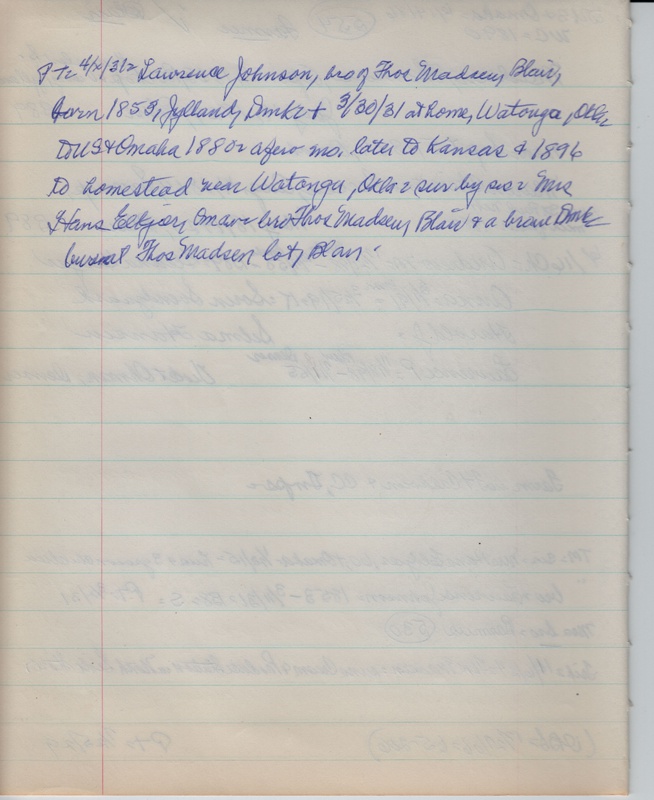 PT= 4/2/31= Lawrence Johnson, bro of Thos Madsen, Blair,
born 1853, Jylland, Dmk & + 3/30/31 at home, Watonga, Okla=
To US & Omaha 1880 = a few mo. later to Kansas & 1896
to homestead near Watonga, Okla = sur by sis = Mrs
Hans Elkjor, Oma = bro Thos Madsen, Blair & a bro in Dmk
burial Thos Madsen lot, Blair.